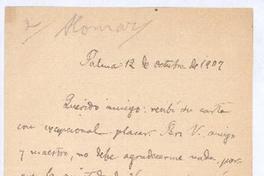 Palma 12 de octubre de 1907
Querido amigo: recibí su carta
con excepcional placer. Pero V. amigo
y maestro, no debe agradecerme nada, por-